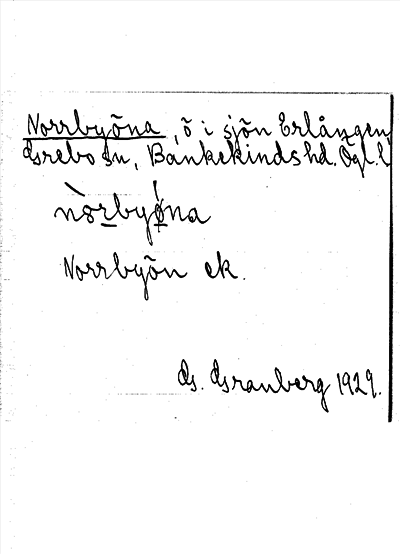 Norrbyöna, ö i sjön Erlången
Grebo sn, Bankekinds hd. Ögl. l
nòrbyǿna
Norrbyön ek.
G. Granberg 1929.